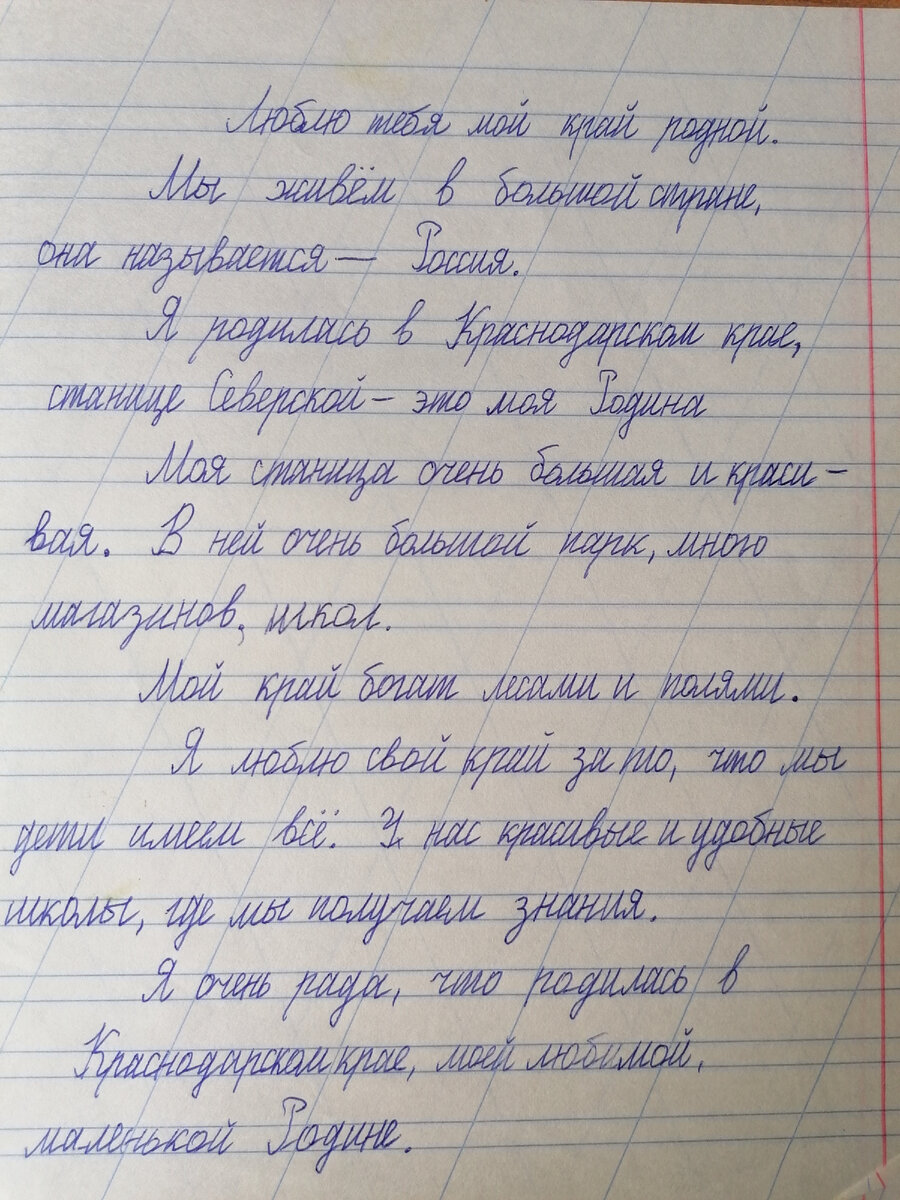 Люблю тебя мой край родной.
Мы живём в большой стране,
она называется — Россия.
Я родилась в Краснодарском крае,
станице Северской – это моя Родина
Моя станица очень большая и краси-
вая. В ней очень большой парк, много
магазинов, школ.
Мой край богат лесами и полями.
Я люблю свой край за то, что мы
дети имеем всё. У нас красивые и удобные
школы, где мы получаем знания.
Я очень рада, что родилась в
Краснодарском крае, моей любимой,
маленькой Родине.